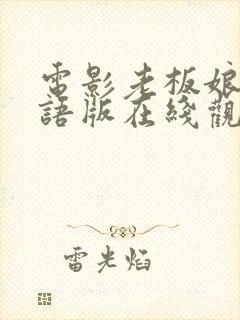 電影老板娘
語版在綫觀
雷光焰